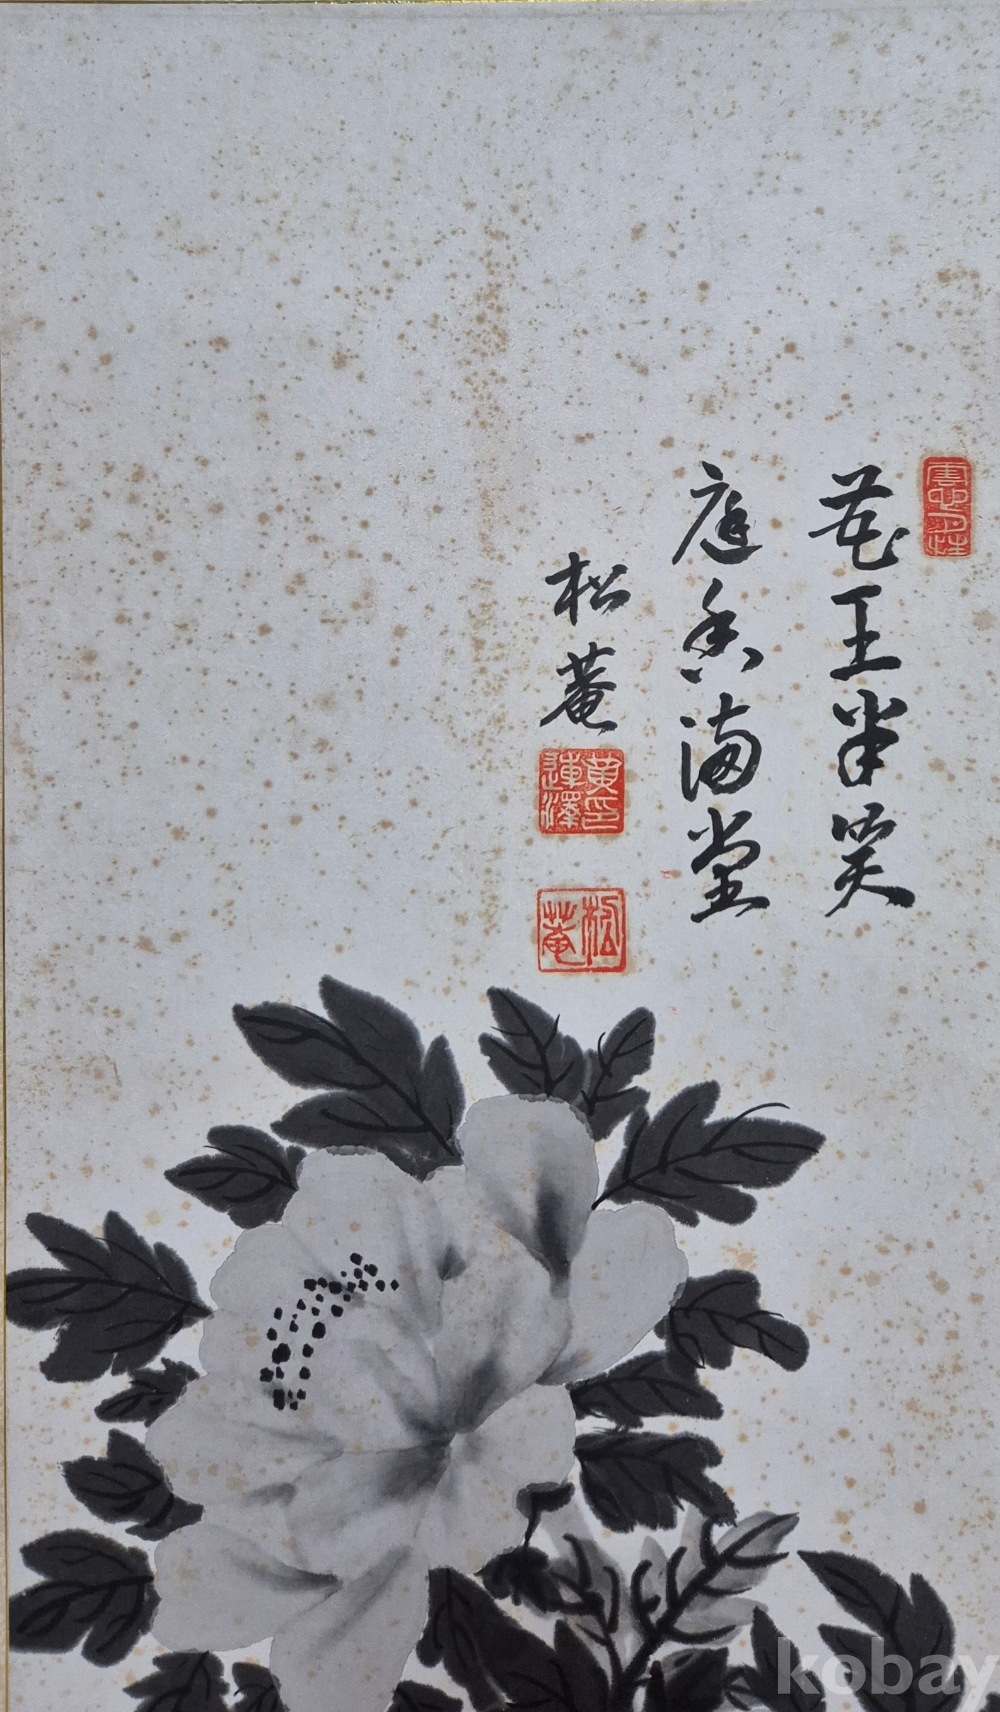 花王半笑
庭香滿堂
松菴
黃連澤印
松菴
kobay